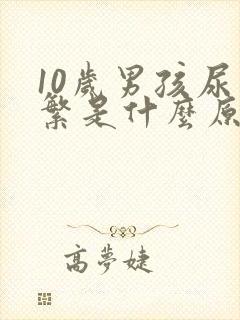 10歲男孩尿
繁是什麼原
高夢婕